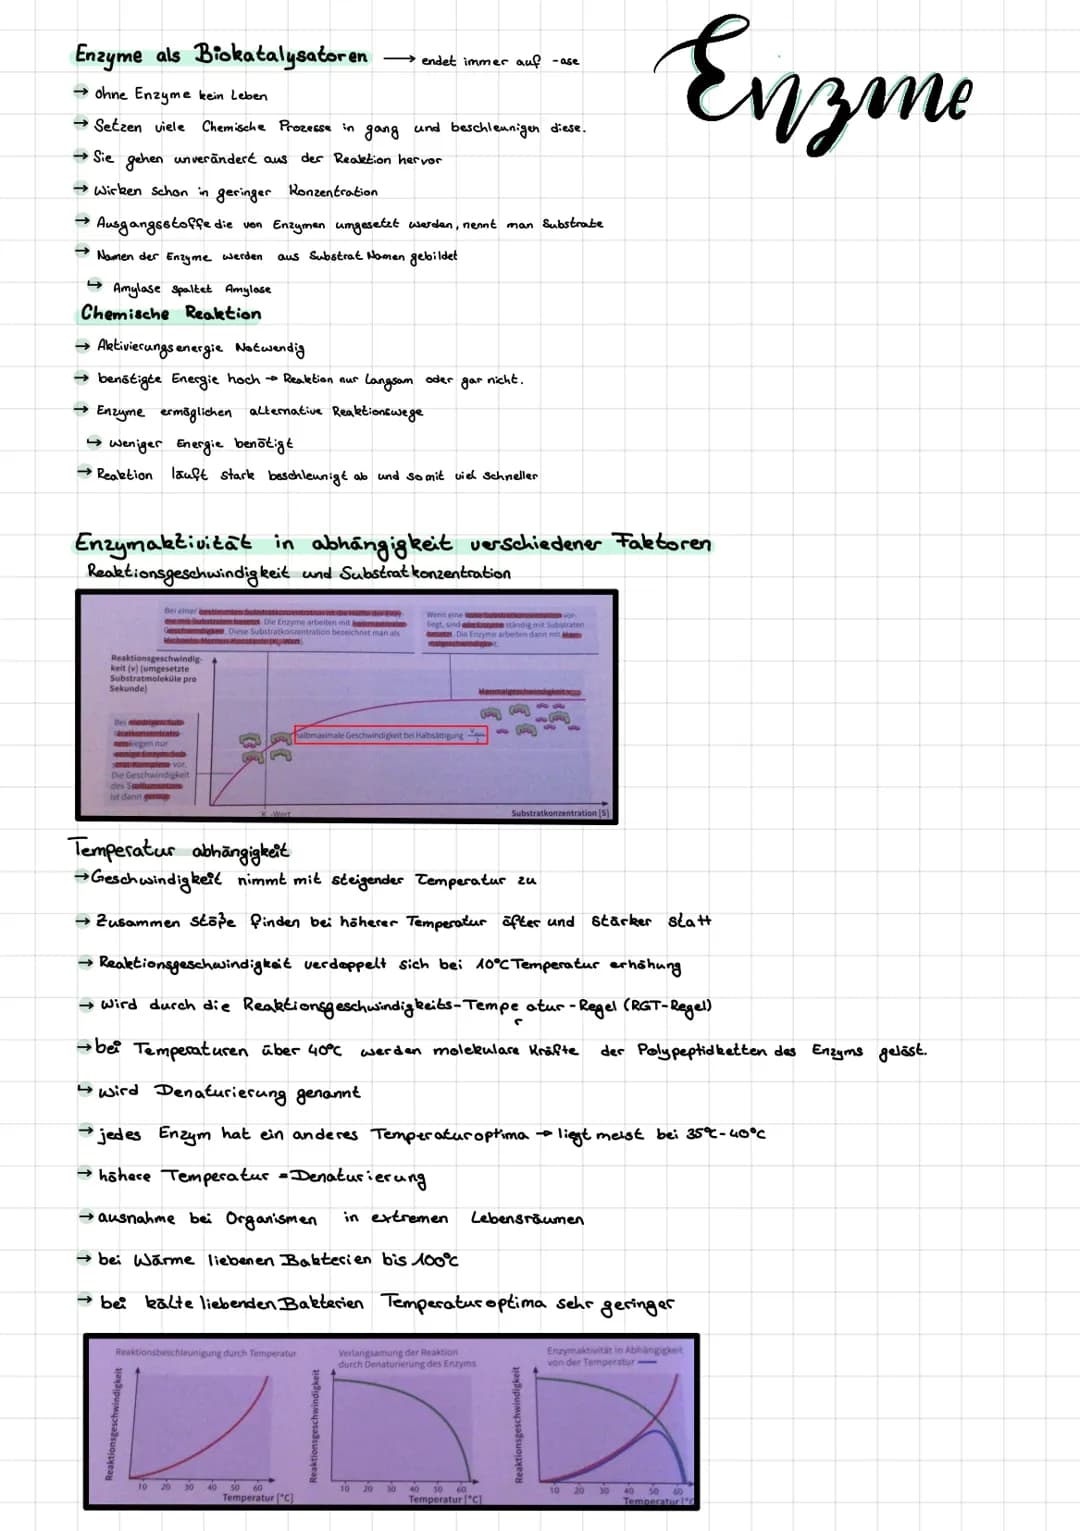 Enzyme
Enzyme als Biokatalysatoren → endet immer auf -ase
→ ohne Enzyme kein Leben
→ Setzen viele Chemische Prozesse in gang und beschleunigen diese.
→ Sie gehen unverändert aus der Reaktion hervor
→ Wirken schon in geringer Konzentration
→ Ausgangsstoffe die von Enzymen umgesetzt werden, nennt man Substrate
→ Namen der Enzyme werden aus Substrat Namen gebildet
↳ Amylase spaltet Amylose
Chemische Reaktion
→ Aktivierungsenergie Notwendig
→ benötigte Energie hoch → Reaktion nur Langsam oder gar nicht.
→ Enzyme ermöglichen alternative Reaktionswege
↳ weniger Energie benötigt
→ Reaktion läuft stark beschleunigt ab und somit viel schneller
Enzymaktivität in abhängigkeit verschiedener Faktoren
Reaktionsgeschwindigkeit und Substratkonzentration
Bei einer bestimmten Substratkonzentration ist die Hälfte der Enzy-
me mit Substraten besetzt. Die Enzyme arbeiten mit halbmaximaler
Geschwindigkeit. Diese Substratkonzentration bezeichnet man als
Michaelis-Menten-Konstante
Wenn eine hohe Substratkonzentration vor-
liegt, sind alle Enzyme ständig mit Substraten
besetzt. Die Enzyme arbeiten dann mit Maxi-
malgeschwindigkeit.
Reaktionsgeschwindig-
keit (v) (umgesetzte
Substratmoleküle pro
Sekunde)
Maximalgeschwindigkeit
halbmaximale Geschwindigkeit bei Halbsättigung
Bei niedrigen Sub-
stratkonzentratio-
nen liegen nur
wenige Enzym-Sub-
strat-Komplexe vor.
Die Geschwindigkeit
des Stoffumsatzes
ist dann gering.
K -Wert
Substratkonzentration [S]
Temperatur abhängigkeit
→ Geschwindigkeit nimmt mit steigender Temperatur zu
→ Zusammen stöße finden bei höherer Temperatur öfter und stärker statt
→ Reaktionsgeschwindigkeit verdoppelt sich bei 10°C Temperatur erhöhung
→ Wird durch die Reaktionsgeschwindigkeits-Temperatur-Regel (RGT-Regel)
→ bei Temperaturen über 40°C werden molekulare Kräfte der Polypeptidketten des Enzyms gelöst.
↳ wird Denaturierung genannt
→ jedes Enzym hat ein anderes Temperaturoptima → liegt meist bei 35°C-40°C
→ höhere Temperatur = Denaturierung
→ ausnahme bei Organismen in extremen Lebensräumen
→ bei Wärme liebenen Bakterien bis 100°C
→ bei kälte liebenden Bakterien Temperaturoptima sehr geringer
Reaktionsbeschleunigung durch Temperatur
Reaktionsgeschwindigkeit
10 20 30 40 50 60
Temperatur [°C]
Verlangsamung der Reaktion
durch Denaturierung des Enzyms
Reaktionsgeschwindigkeit
10 20 30 40 50 60
Temperatur [°C]
Enzymaktivität in Abhängigkeit
von der Temperatur
Reaktionsgeschwindigkeit
10 20 30 40 50 60
Temperatur [°C